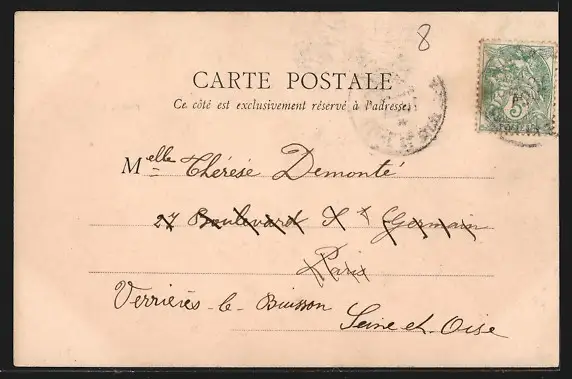 8
CARTE POSTALE
Ce côté est exclusivement réservé à l'adresse
Melle Thérèse Demonté
27 Boulevard St Germain
Paris
Verrières-le-Buisson
Seine et Oise
5